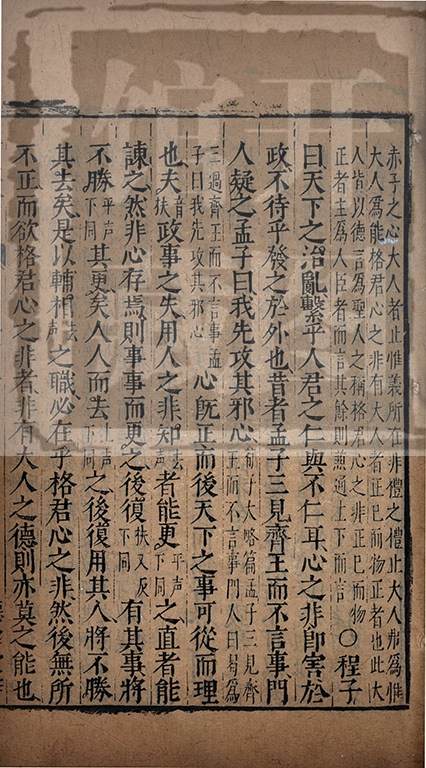 赤子之心大人者止惟義所在非禮之禮止大人弗爲惟
大人爲能格君心之非有大人者正巳而物正者也此大
人皆以德言爲聖人之稱格君心之非正巳而物
正者主爲人臣者而言其餘則兼通上下而言
○程子
曰天下之治亂繫乎人君之仁與不仁耳心之非即害於
政不待乎發之於外也昔者孟子三見齊王而不言事門
人疑之孟子曰我先攻其邪心荀子大略篇孟子三見齊王而不言事門人曰曷爲
三過齊王而不言事孟子曰我先攻其邪心心旣正而後天下之事可從而理
也夫音扶政事之失用人之非知去聲者能更平聲下同之直者能
諫之然非心存焉則事事而更之後復扶又反下同有其事將
不勝平聲下同其更矣人人而去上聲下同之後復用其人將不勝
其去矣是以輔相去聲之職必在乎格君心之非然後無所
不正而欲格君心之非者非有大人之德則亦莫之能也